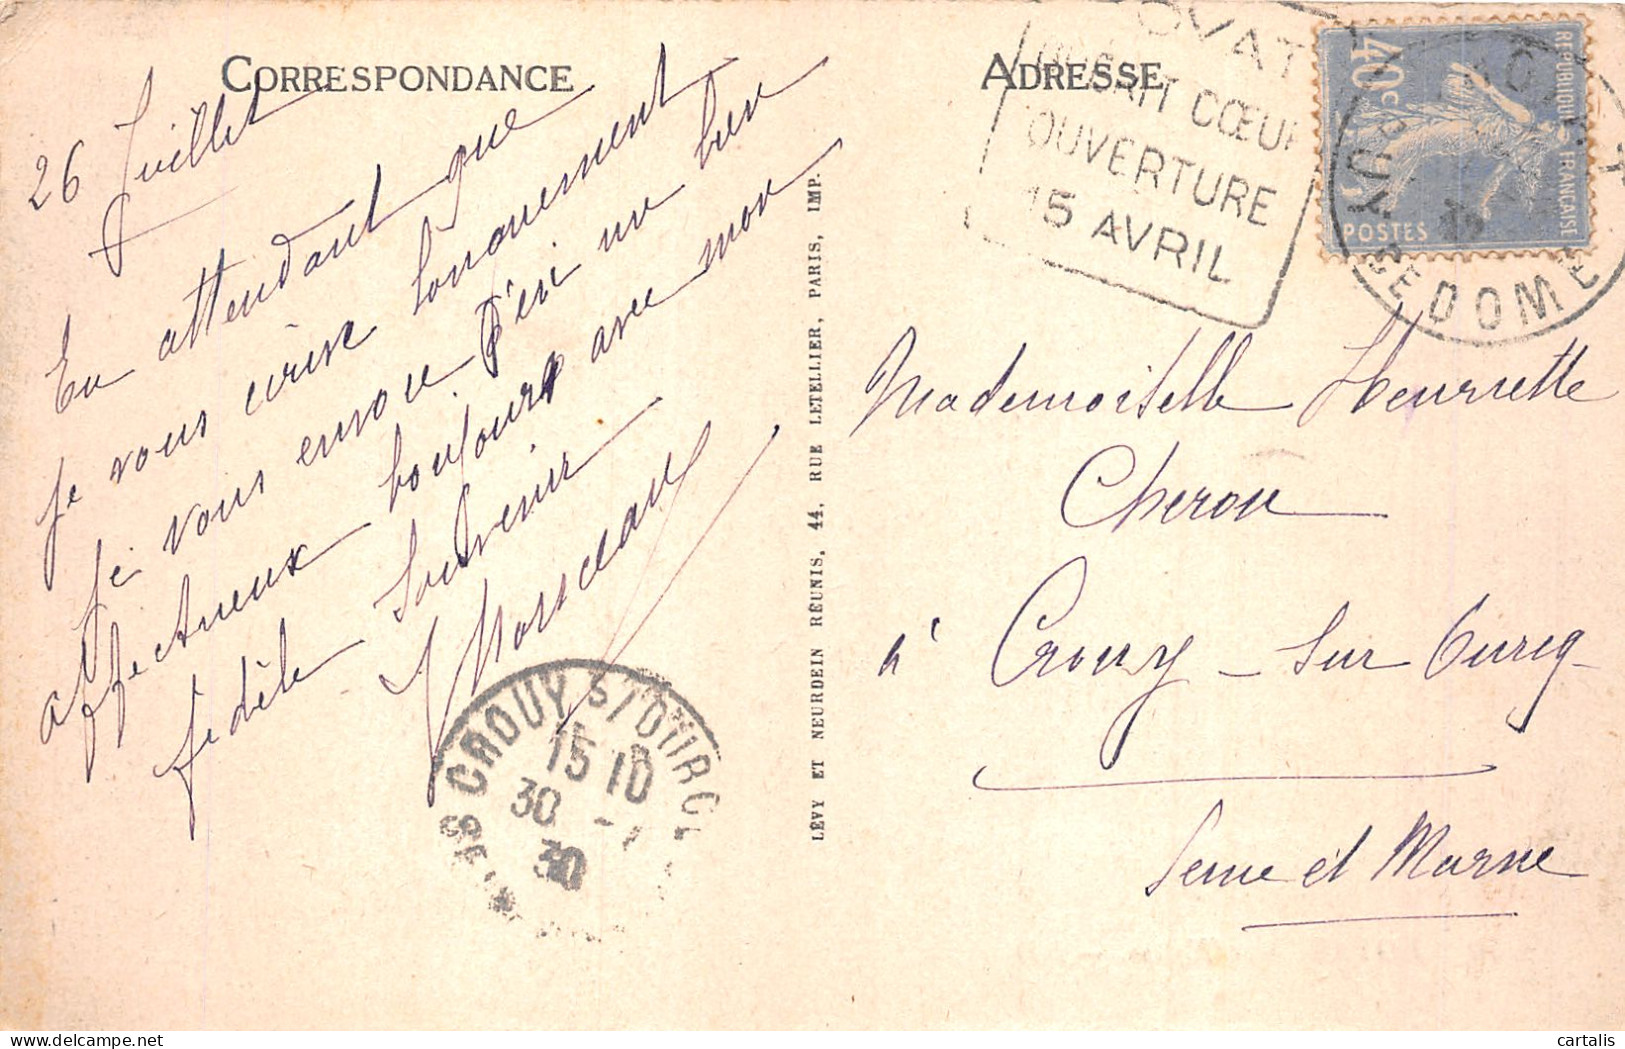 CORRESPONDANCE
26 Juillet
En attendant que
je vous écrive longuement
je vous envoie d'ici un bien
affectueux bonjour avec mon
fidèle souvenir
LÉVY ET NEURDEIN RÉUNIS, 44, RUE LETELLIER, PARIS, IMP.
ADRESSE
ROYAT
CŒUR
OUVERTURE
15 AVRIL
40c
REPUBLIQUE FRANÇAISE
POSTES
PUY DE DOME
Mademoiselle Henriette
Cheron
à Crouy-sur Ourcq
Seine et Marne
CROUY S/OURCQ
15 10
30 -7
30
cartalis
delcampe.net